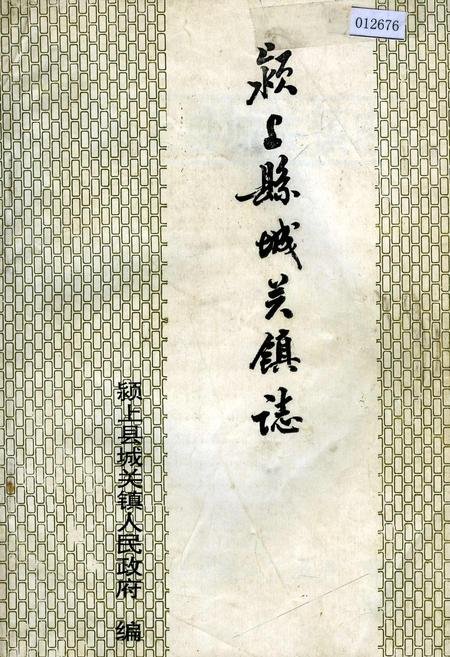 012676
颍上縣城关镇誌
颍上县城关镇人民政府 编